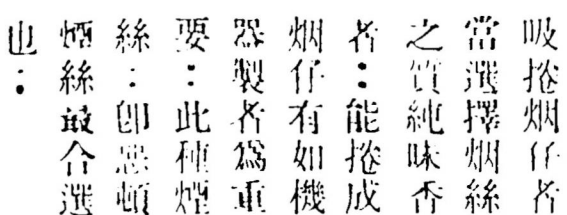 吸捲烟仔者
當選擇烟絲
之質純味香
者：能捲成
烟仔有如機
器製者為重
要：此種煙
絲：卽惡頓
煙絲最合選
也：